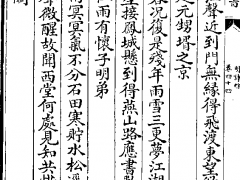 聲近到門無緣得飛渡東望
元甥壻之京
況復是殘年雨雪三更夢江湖
接鳳城懸到得燕山路應書
雨有懷子明弟
冥冥氣不分石田寒貯水松
微醒故閣西堂何處見知共